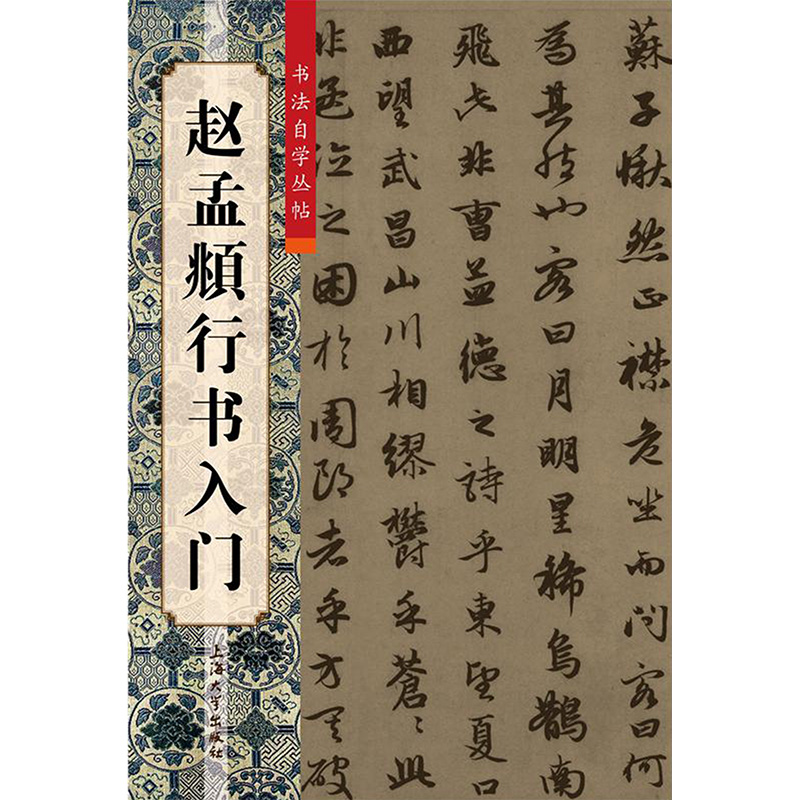 赵孟頫行书入门
书法自学丛帖
上海大学出版社
蘇子愀然正襟危坐而問客曰何
為其然也客曰月明星稀烏鵲南
飛此非曹孟德之詩乎東望夏口
西望武昌山川相繆鬱乎蒼〻此
非孟德之困於周郎者乎方其破